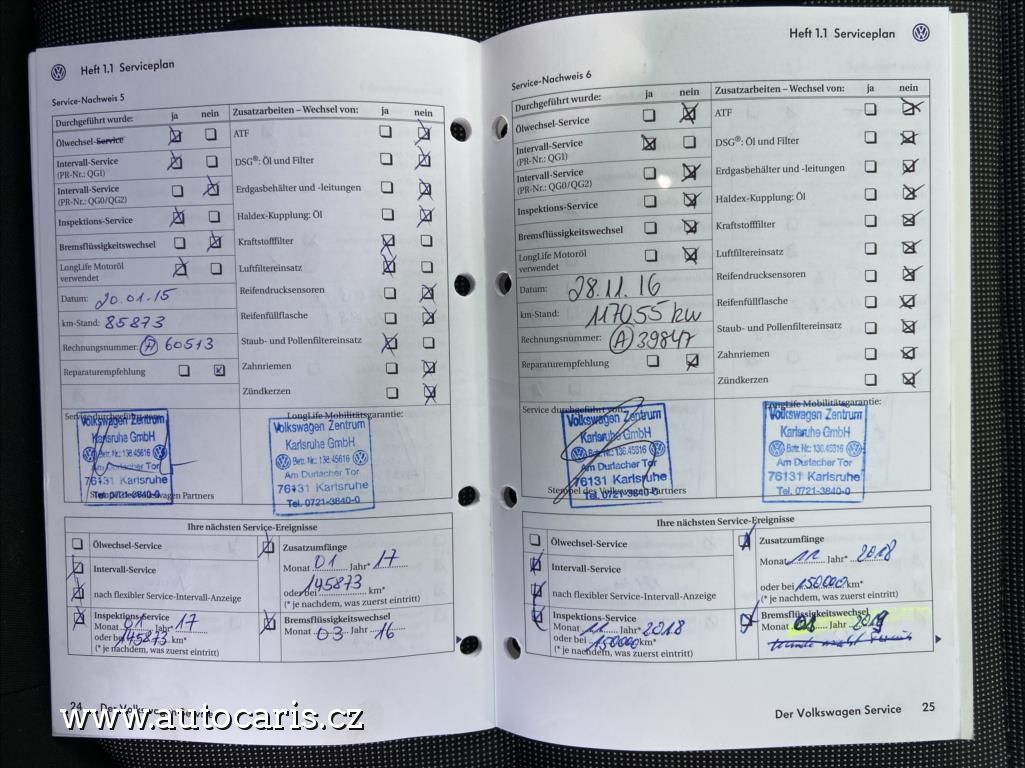 Heft 1.1 Serviceplan
Service-Nachweis 5
Durchgeführt wurde: ja nein
Ölwechsel-Service
Intervall-Service
(PR-Nr.: QGI)
Intervall-Service
(PR-Nr.: QG0/QG2)
Inspektions-Service
Bremsflüssigkeitswechsel
LongLife Motoröl
verwendet
Datum: 20.01.15
km-Stand: 85873
Rechnungsnummer: A 60513
Reparaturempfehlung
Zusatzarbeiten – Wechsel von: ja nein
ATF
DSG®: Öl und Filter
Erdgasbehälter und -leitungen
Haldex-Kupplung: Öl
Kraftstofffilter
Luftfiltereinsatz
Reifendrucksensoren
Reifenfüllflasche
Staub- und Pollenfiltereinsatz
Zahnriemen
Zündkerzen
Service durchgeführt von:
Volkswagen Zentrum
Karlsruhe GmbH
Betr. Nr.: 136.45816
Am Durlacher Tor
76131 Karlsruhe
Tel. 0721-3840-0
Stempel des Volkswagen Partners
LongLife Mobilitätsgarantie:
Volkswagen Zentrum
Karlsruhe GmbH
Betr. Nr.: 136.45816
Am Durlacher Tor
76131 Karlsruhe
Tel. 0721-3840-0
Ihre nächsten Service-Ereignisse
Ölwechsel-Service
Intervall-Service
nach flexibler Service-Intervall-Anzeige
Inspektions-Service
Monat 01 Jahr* 17
oder bei 145873 km*
(* je nachdem, was zuerst eintritt)
Zusatzumfänge
Monat 01 Jahr* 17
oder bei 145873 km*
(* je nachdem, was zuerst eintritt)
Bremsflüssigkeitswechsel
Monat 03 Jahr 16
24 Der Volkswagen Service
Heft 1.1 Serviceplan
Service-Nachweis 6
Durchgeführt wurde: ja nein
Ölwechsel-Service
Intervall-Service
(PR-Nr.: QGI)
Intervall-Service
(PR-Nr.: QG0/QG2)
Inspektions-Service
Bremsflüssigkeitswechsel
LongLife Motoröl
verwendet
Datum: 28.11.16
km-Stand: 117055 km
Rechnungsnummer: A 39847
Reparaturempfehlung
Zusatzarbeiten – Wechsel von: ja nein
ATF
DSG®: Öl und Filter
Erdgasbehälter und -leitungen
Haldex-Kupplung: Öl
Kraftstofffilter
Luftfiltereinsatz
Reifendrucksensoren
Reifenfüllflasche
Staub- und Pollenfiltereinsatz
Zahnriemen
Zündkerzen
Service durchgeführt von:
Volkswagen Zentrum
Karlsruhe GmbH
Betr. Nr.: 136.45816
Am Durlacher Tor
76131 Karlsruhe
Tel. 0721-3840-0
Stempel des Volkswagen Partners
LongLife Mobilitätsgarantie:
Volkswagen Zentrum
Karlsruhe GmbH
Betr. Nr.: 136.45816
Am Durlacher Tor
76131 Karlsruhe
Tel. 0721-3840-0
Ihre nächsten Service-Ereignisse
Ölwechsel-Service
Intervall-Service
nach flexibler Service-Intervall-Anzeige
Inspektions-Service
Monat 11 Jahr* 2018
oder bei 150000 km*
(* je nachdem, was zuerst eintritt)
Zusatzumfänge
Monat 11 Jahr* 2018
oder bei 150000 km*
(* je nachdem, was zuerst eintritt)
Bremsflüssigkeitswechsel
Monat Jahr
Der Volkswagen Service 25
www.autocaris.cz